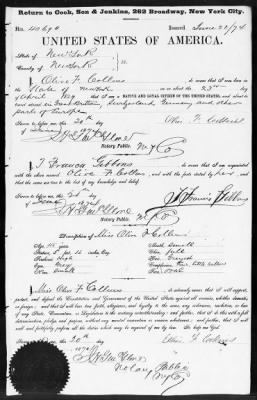 Return to Cook, Son & Jenkins, 262 Broadway, New York City.
No. Issued June 22/74
UNITED STATES OF AMERICA.
State of New York
County of New York
I, Olive F. Collins do swear that I was born in the
State of New York on the 23rd day
of April that I am a NATIVE AND LOYAL CITIZEN OF THE UNITED STATES, and about
to travel in Great Britain, Switzerland, Germany and other
parts of Europe
Sworn to before me this 20th
day of June 1874
Notary Public
I, Francis Gibbons do swear that I am acquainted
with the above named Olive F. Collins and with the facts stated by her, and
that the same are true to the best of my knowledge and belief.
Sworn to before me this 20th
day of June 1874
J. Francis Gibbons
Notary Public
Description of Miss Olive F. Collins
Age years Mouth Small
Stature 5 ft inches Eng. Chin
Forehead high Hair
Eyes Grey Complexion
Nose Small Face oval
I, Miss Olive F. Collins do solemnly swear that I will support,
protect, and defend the Constitution and Government of the United States against all enemies, whether domestic
or foreign; and that I will bear true faith, allegiance, and loyalty to the same, any ordinance, resolution, or law
of any State, Convention, or Legislature to the contrary notwithstanding; and further, that I do this with a full
determination, pledge, and purpose, without any mental reservation or evasion whatsoever; and further, that I will
well and faithfully perform all the duties which may be required of me by law. So help me God.
Sworn to before me this 20th
day of June 1874
Notary Public